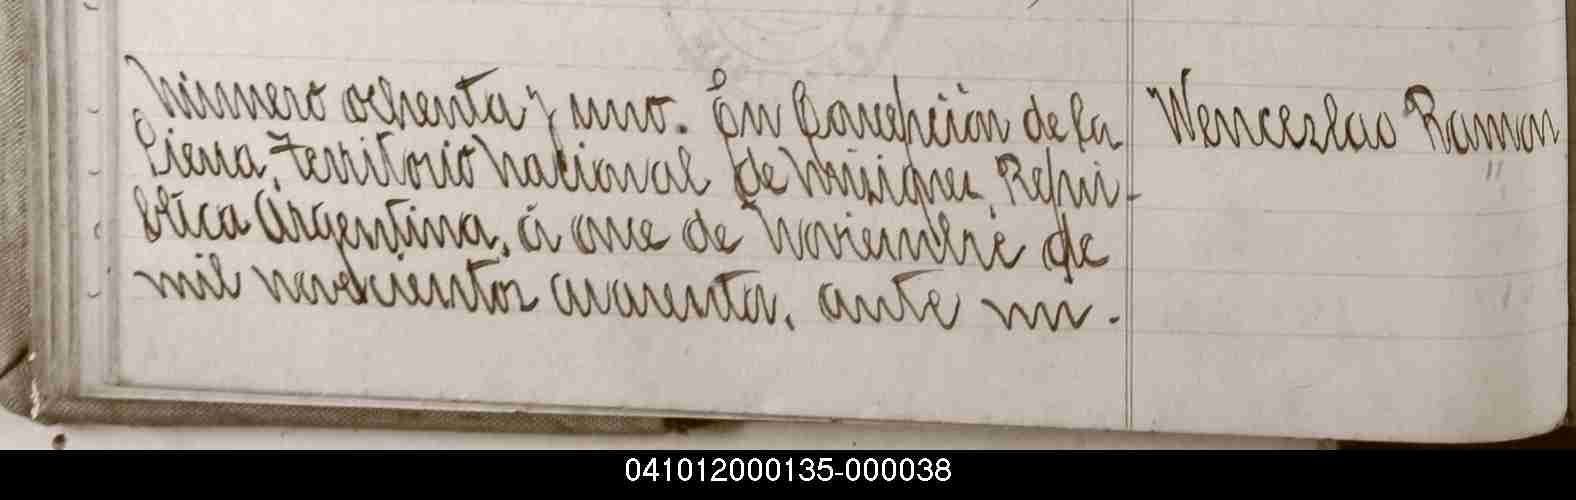 Número ochenta y uno. En Concepción de la
Sierra, Territorio Nacional de Misiones, Repú-
blica Argentina, á once de Noviembre de
mil novecientos cuarenta, ante mi.
Wenceslao Ramon
"
041012000135-000038